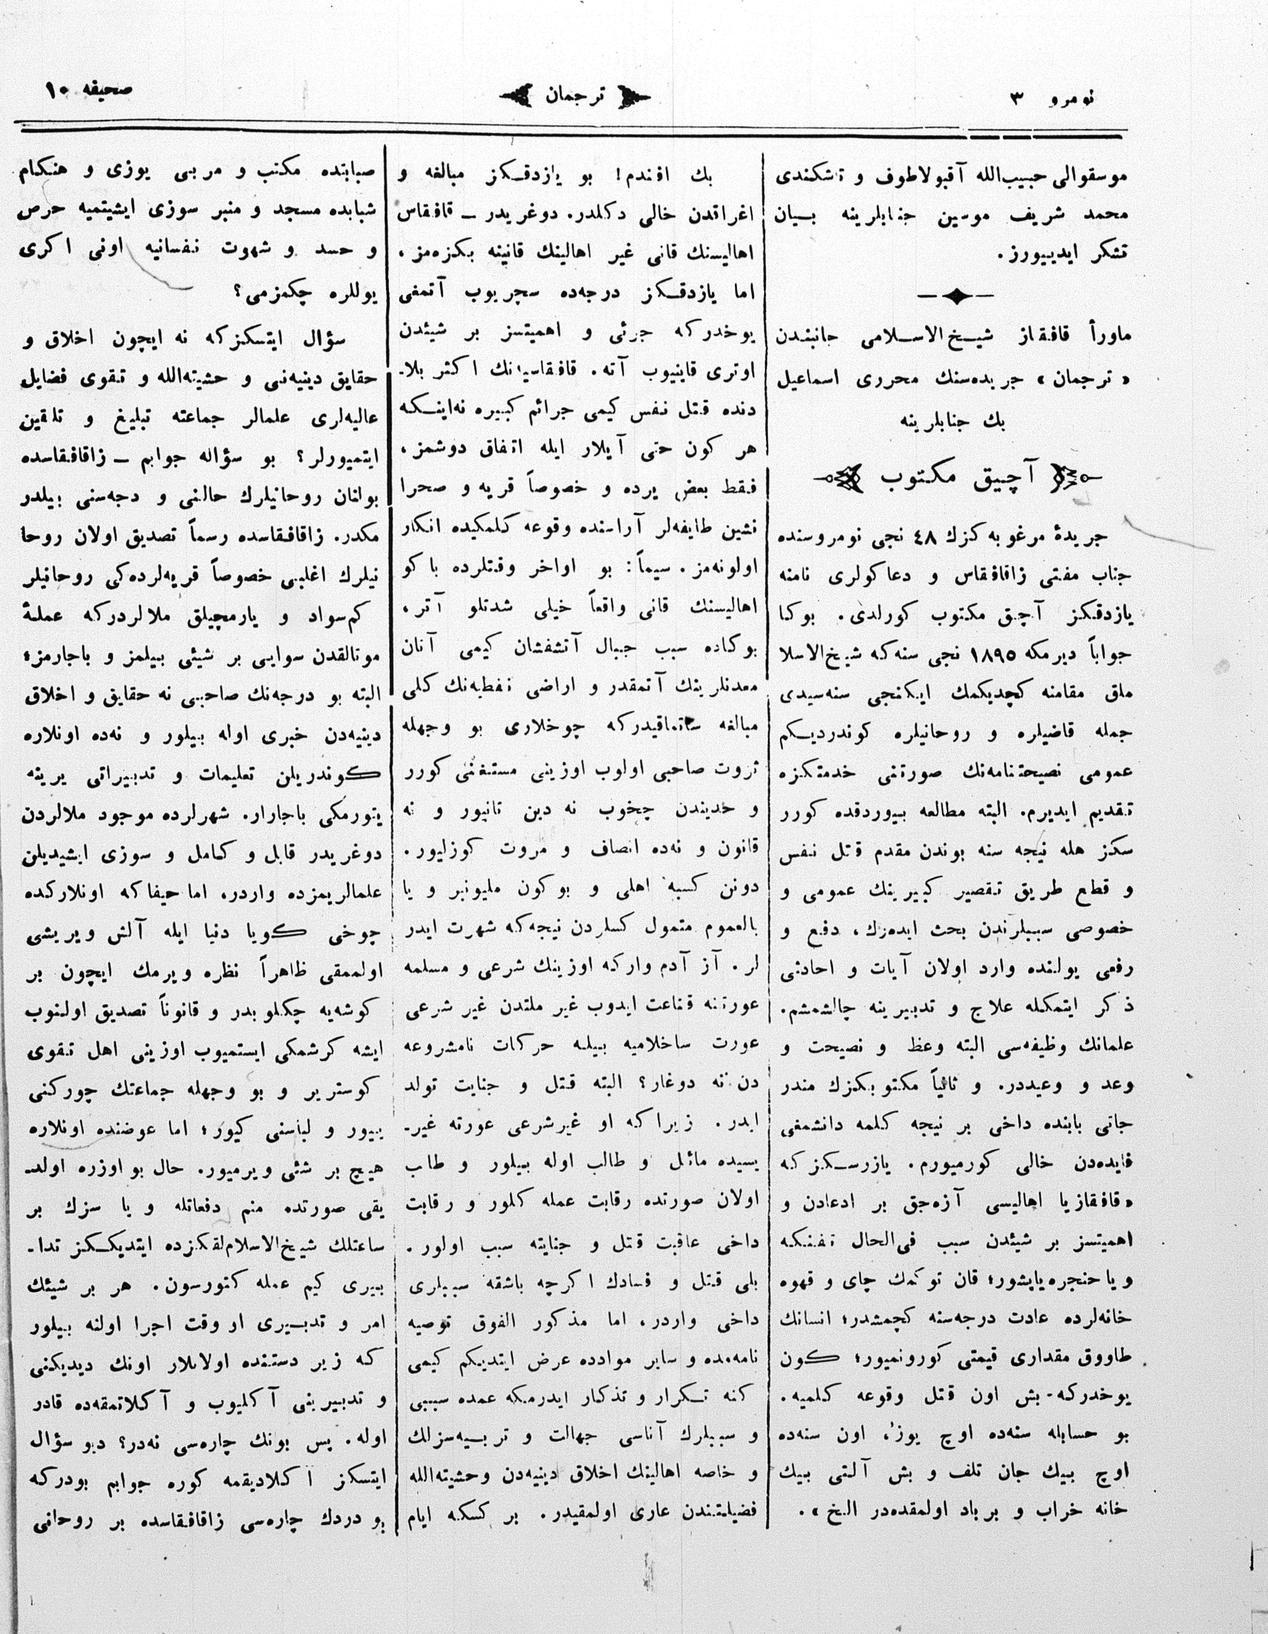 نومرو ٣
ترجمان
صحیفه ١٠
موسقوالی حبیب‌الله آقبولاطوف و تاشکندی
محمد شریف موسین جنابلرینه بیان
تشکر ایدییورز.
ماورأ قافقاز شیخ‌الاسلامی جانبندن
«ترجمان» جریده‌سنك محرری اسماعیل
بك جنابلرینه
آچیق مکتوب
جریدهٔ مرغوبه کزك ٤٨ نجی نومروسنده
جناب مفتی زاقافقاس و دعاکولری نامنه
یازدقکز آچیق مکتوب کورلدی. بوکا
جواباً دیرمکه ١٨٩٥ نجی سنه‌که شیخ‌الاسلا
ملق مقامنه کچدیکمك ایکنجی سنه‌سیدی
جمله قاضیلره و روحانیلره کوندردیکم
عمومی نصیحتنامه‌نك صورتنی خدمتکزه
تقدیم ایدیرم. البته مطالعه بیوردقده کورر
سکز هله نیجه سنه بوندن مقدم قتل نفس
و قطع طریق تقصیر کبیرینك عمومی و
خصوصی سببلرندن بحث ایده‌رك، دفع و
رفعی یولنده وارد اولان آیات و احادثی
ذکر ایتمکله علاج و تدبیرینه چالشمشم.
علمانك وظیفه‌سی البته وعظ و نصیحت و
وعد و وعیددر. و ثانیاً مکتوبکزك مندر
جاتی بابنده داخی بر نیجه کلمه دانشمغی
فایده‌دن خالی کورمیورم. یازرسکز که
«قافقازیا اهالیسی آزه‌جق بر ادعادن و
اهمیتسز بر شیئدن سبب فی‌الحال تفنکه
و یا خنجره یاپشور؛ قان توکمك چای و قهوه
خانه‌لرده عادت درجه‌سنه کچمشدر؛ انسانك
طاووق مقداری قیمتی کورونمیور؛ کون
یوخدرکه - بش اون قتل وقوعه کلمیه.
بو حسابله سنه‌ده اوچ یوز، اون سنه‌ده
اوچ بیك جان تلف و بش آلتی بیك
خانه خراب و برباد اولمقده‌در الخ».
بك افندم! بو یازدقکز مبالغه و
اغراقدن خالی دکلدر. دوغریدر ــ قافقاس
اهالیسنك قانی غیر اهالینك قانینه بکزه‌مز،
اما یازدقکز درجه‌ده سچریوب آتمغی
یوخدرکه جزئی و اهمیتسز بر شیئدن
اوتری قاینیوب آته. قافقاسیه‌نك اکثر بلا-
دنده قتل نفس کیمی جرائم کبیره نه‌اینکه
هر کون حتی آیلار ایله اتفاق دوشمز،
فقط بعض یرده و خصوصاً قریه و صحرا
نشین طایفه‌لر آراسنده وقوعه کلمکیده انکار
اولونه‌مز. سیماً: بو اواخر وقتلرده باکو
اهالیسنك قانی واقعاً خیلی شدتلو آتر،
بوکاده سبب جبال آتشفشان کیمی آنان
معدنلرینك آتمقدر و اراضی نفطیه‌نك کلی
مبالغه ساتماقیدرکه چوخلاری بو وجهله
ثروت صاحبی اولوب اوزینی مستغنی کورر
و حدیندن چخوب نه دین تانیور و نه
قانون و نه‌ده انصاف و مروت کوزلیور.
دونن کسبه اهلی و بوکون ملیونبر و یا
بالعموم متمول کسلردن نیجه‌که شهرت ایدر
لر. آز آدم وارکه اوزینك شرعی و مسلمه
عورتنه قناعت ایدوب غیر ملتدن غیر شرعی
عورت ساخلامیه بیله حرکات نامشروعه
دن نه دوغار؟ البته قتل و جنایت تولد
ایدر. زیراکه او غیرشرعی عورته غیر-
یسیده مائل و طالب اوله بیلور و طاب
اولان صورتده رقابت عمله کلور و رقابت
داخی عاقبت قتل و جنایته سبب اولور.
بلی قتل و فسادك اکرچه باشقه سببلری
داخی واردر، اما مذکور الفوق توصیه
نامه‌مده و سایر موادده عرض ایتدیکم کیمی
کنه تکرار و تذکار ایدرمکه عمده سببی
و سببلرك آناسی جهالت و تربیه‌سزلك
و خاصه اهالینك اخلاق دینیه‌دن وحشیته‌الله
فضیلتندن عاری اولمقیدر. بر کسکه ایام
صبابتده مکتب و مربی یوزی و هنکام
شبابده مسجد و منبر سوزی ایشیتمیه حرص
و حسد و شهوت نفسانیه اونی اکری
یوللره چکمزمی؟
سؤال ایتسکزکه نه ایچون اخلاق و
حقایق دینیه‌نی و حشیته‌الله و تقوی فضایل
عالیه‌لری علمالر جماعته تبلیغ و تلقین
ایتمیورلر؟ بو سؤاله جوابم ــ زاقافقاسده
بولنان روحانیلرك حالنی و دجه‌سنی بیلدر
مکدر. زاقافقاسده رسماً تصدیق اولان روحا
نیلرك اغلبی خصوصاً قریه‌لرده‌کی روحانیلر
کم‌سواد و یارمچیلق ملالردرکه عملهٔ
موتالقدن سوایی بر شیئی بیلمز و باجارمز؛
البته بو درجه‌نك صاحبی نه حقایق و اخلاق
دینیه‌دن خبری اوله بیلور و نه‌ده اونلاره
کوندریلن تعلیمات و تدبیراتی یرینه
یتورمکی باجارار. شهرلرده موجود ملالردن
دوغریدر قابل و کامل و سوزی ایشیدیلن
علمالریمزده واردر. اما حیفاکه اونلارکده
چوخی کویا دنیا ایله آلش ویریشی
اولممقی ظاهراً نظره ویرمك ایچون بر
کوشه‌یه چکلوبدر و قانوناً تصدیق اولنوب
ایشه کرشمکی ایستمیوب اوزینی اهل تقوی
کوستریر و بو وجهله جماعتك چورکنی
ییور و لباسنی کیور؛ اما عوضنده اونلاره
هیچ بر شئی ویرمیور. حال بو اوزره اولد-
یقی صورتده منم دفعاتله و یا سزك بر
ساعتلك شیخ‌الاسلاملقکزده ایتدیککز تدا-
بیری کیم عمله کتورسون. هر بر شیئك
امر و تدبیری او وقت اجرا اولنه بیلور
که زیر دستنده اولاملار اونك دیدیکنی
و تدبیرینی آکلیوب و آکلاتمقه‌ده قادر
اوله. پس بونك چاره‌سی نه‌در؟ دیو سؤال
ایتسکز آکلادیقمه کوره جوابم بودرکه
بو دردك چاره‌سی زاقافقاسده بر روحانی